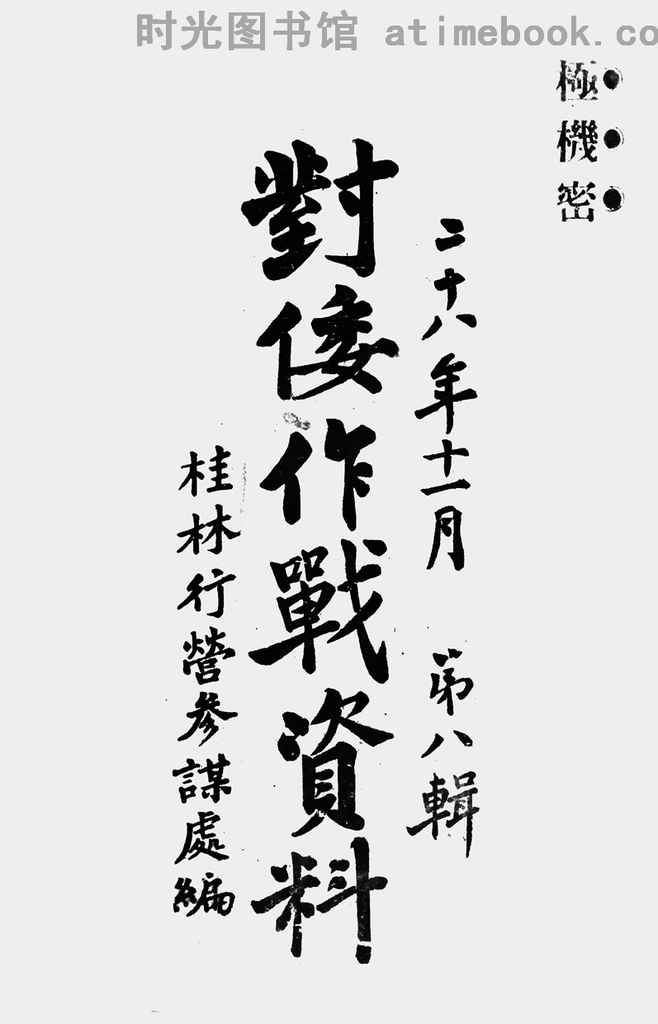 时光图书馆 atimebook.co
極機密
二十八年十一月 第八輯
對倭作戰資料
桂林行營參謀處編